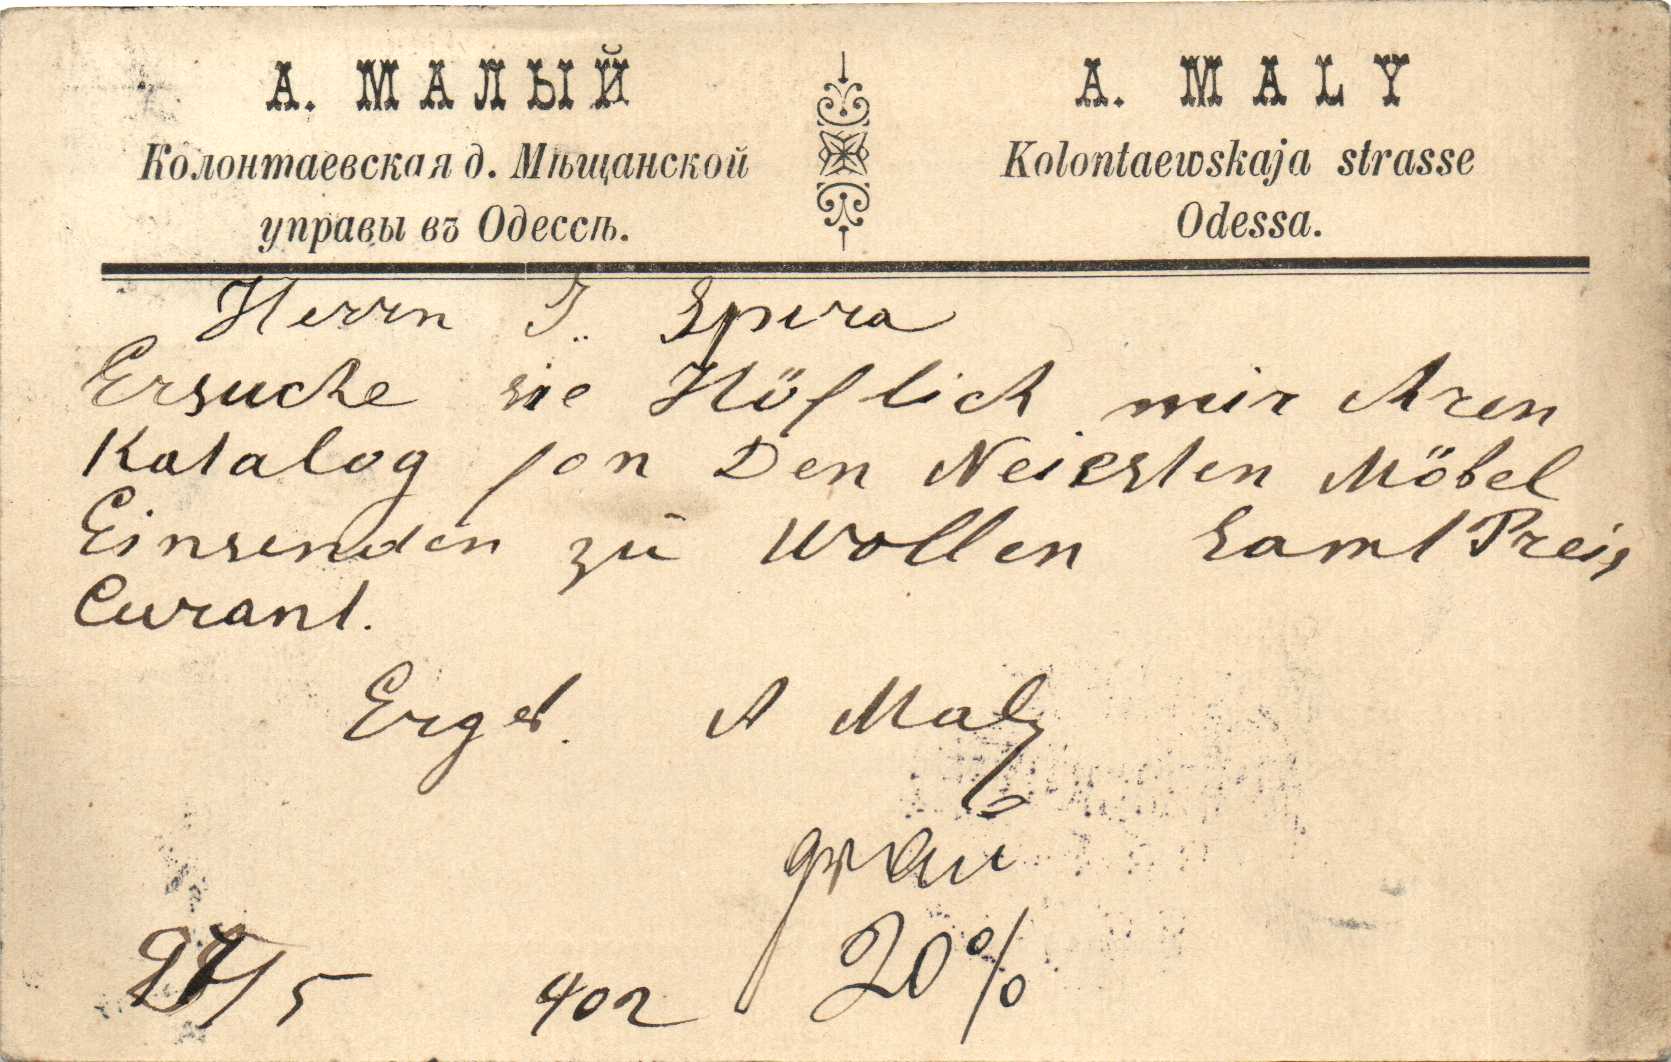 А. МАЛЫЙ
Колонтаевская д. Мѣщанской
управы въ Одессѣ.
A. MALY
Kolontaewskaja strasse
Odessa.
Herrn J. Spira
Ersuche sie Höflich mir Ihren
Katalog fon Den Neiesten Möbel
Einsenden zu Wollen Samt Preis
Curant.
Erget. A Maly
grau
20%
27/5 902